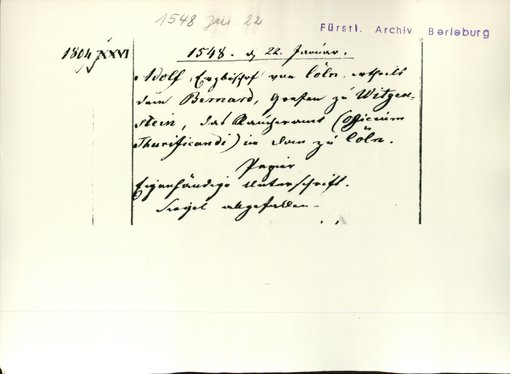 1548 Jan. 22
Fürstl. Archiv Berleburg
1804 XXVI
1548. d. 22. Januar.
Adolf, Erzbischof von Cöln, ertheilt
dem Bernard, Grafen zu Witgen-
stein, das Raucheramt (Officium
Thurificandi) in dom zu Cöln.
Papier
Eigenhändige Unterschrift.
Siegel abgefallen.